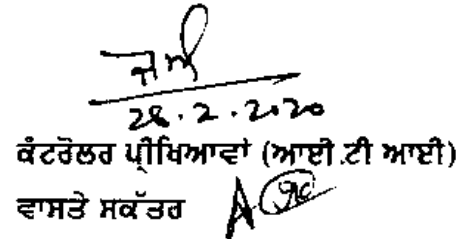 28.2.2020
ਕੰਟਰੋਲਰ ਪ੍ਰੀਖਿਆਵਾਂ (ਆਈ.ਟੀ ਆਈ)
ਵਾਸਤੇ ਸਕੱਤਰ